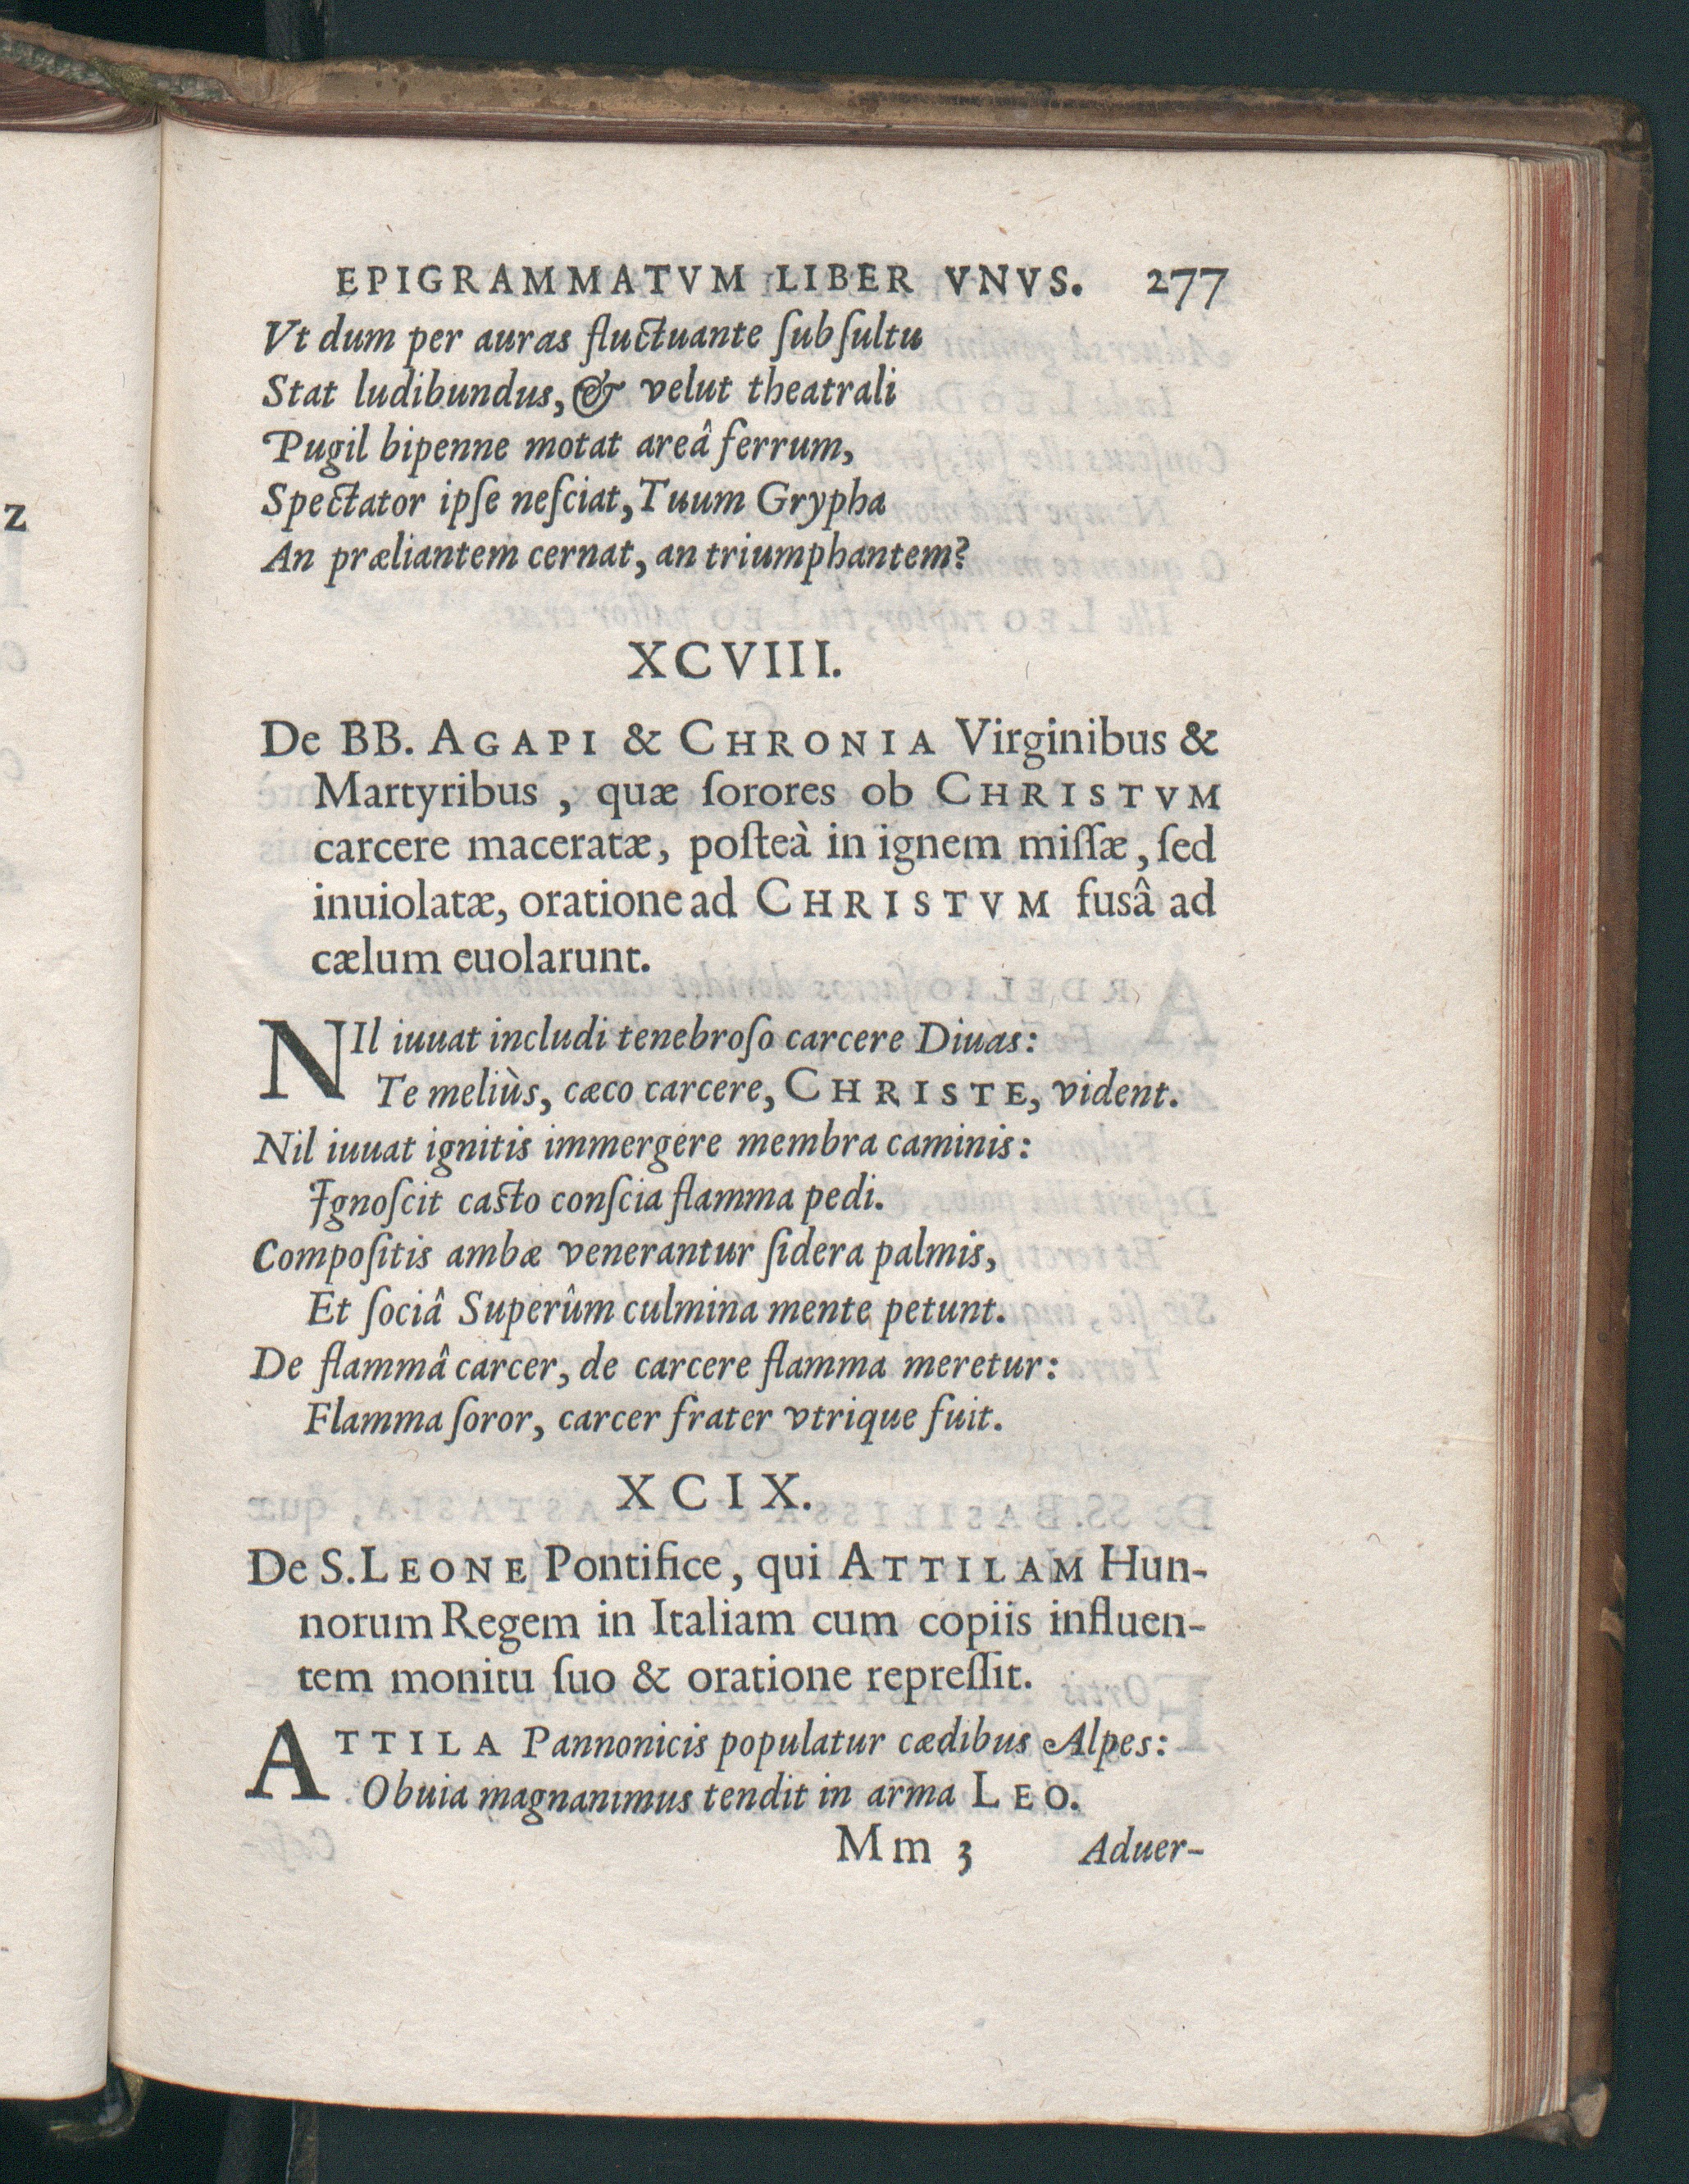 EPIGRAMMATVM LIBER VNVS. 277
Vt dum per auras fluctuante ſubſultu
Stat ludibundus, & velut theatrali
Pugil bipenne motat areâ ferrum,
Spectator ipſe neſciat, Tuum Grypha
An præliantem cernat, an triumphantem?
XCVIII.
De BB. AGAPI & CHRONIA Virginibus &
Martyribus , quæ ſorores ob CHRISTVM
carcere maceratæ, poſteà in ignem miſſæ, ſed
inuiolatæ, oratione ad CHRISTVM fusâ ad
cælum euolarunt.
NIl iuuat includi tenebroſo carcere Diuas:
Te meliùs, cæco carcere, CHRISTE, vident.
Nil iuuat ignitis immergere membra caminis:
Ignoſcit caſto conſcia flamma pedi.
Compoſitis ambæ venerantur ſidera palmis,
Et ſociâ Superûm culmina mente petunt.
De flammâ carcer, de carcere flamma meretur:
Flamma ſoror, carcer frater vtrique fuit.
XCIX.
De S. LEONE Pontifice, qui ATTILAM Hun-
norum Regem in Italiam cum copiis influen-
tem monitu ſuo & oratione repreſſit.
ATTILA Pannonicis populatur cædibus Alpes:
Obuia magnanimus tendit in arma LEO.
Mm 3 Aduer-